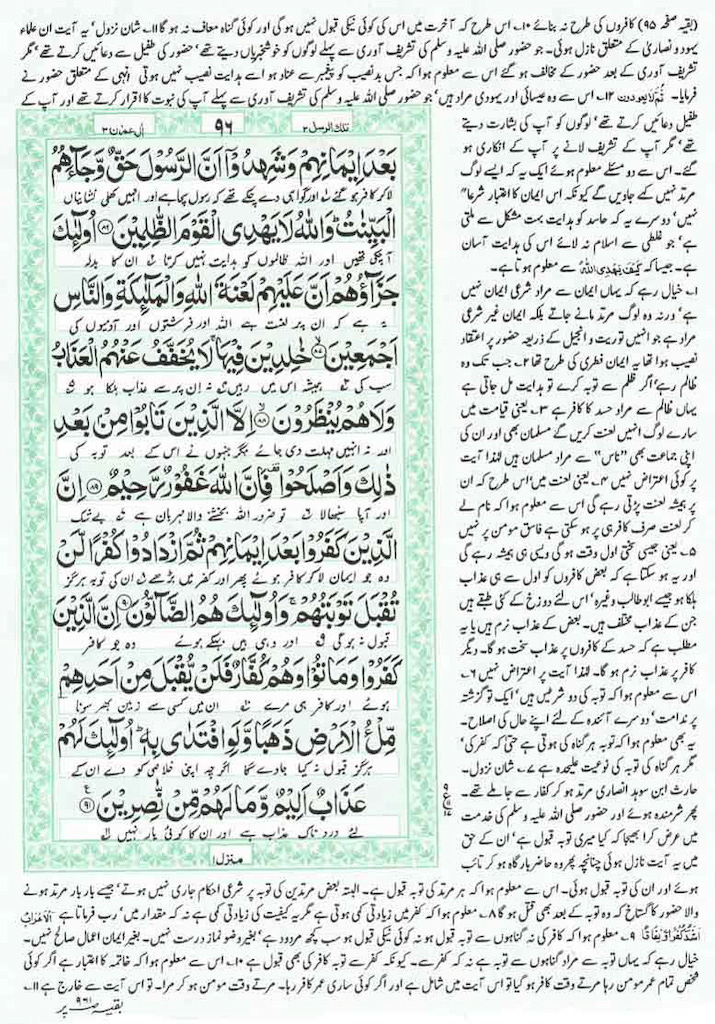 (بقیہ صفحہ ۹۵) کافروں کی طرح نہ بنائے ۱۰۔ اس طرح کہ آخرت میں اس کی کوئی نیکی قبول نہیں ہو گی اور کوئی گناہ معاف نہ ہو گا ۱۱۔ شان نزول' یہ آیت ان علماء
یہود و نصاریٰ کے متعلق نازل ہوئی۔ جو حضور صلی اللہ علیہ وسلم کی تشریف آوری سے پہلے لوگوں کو خوشخبریاں دیتے تھے' حضور کی طفیل سے دعائیں کرتے تھے' مگر
تشریف آوری کے بعد حضور کے مخالف ہو گئے اس سے معلوم ہوا کہ جس بد نصیب کو پیغمبر سے عناد ہو اسے ہدایت نصیب نہیں ہوتی انہی کے متعلق حضور نے
فرمایا۔ ثُمَّ لَا یَعُودُونَ ۱۲۔ اس سے وہ عیسائی اور یہودی مراد ہیں' جو حضور صلی اللہ علیہ وسلم کی تشریف آوری سے پہلے آپ کی نبوت کا اقرار کرتے تھے اور آپ کے
تلك الرسل ۳
۹۶
اٰل عمرٰن ۳
بَعْدَ اِيْمَانِهِمْ وَشَهِدُوْٓا اَنَّ الرَّسُوْلَ حَقٌّ وَّجَآءَهُمُ
لا کر کافر ہو گئے اور گواہی دے چکے تھے کہ رسول سچا ہے اور انہیں کھلی نشانیاں
الْبَيِّنٰتُ ؕ وَاللّٰهُ لَا يَهْدِى الْقَوْمَ الظّٰلِمِيْنَ ﴿۸۶﴾ اُولٰٓئِكَ
آچکی تھیں اور اللہ ظالموں کو ہدایت نہیں کرتا ان کا بدلہ
جَزَآؤُهُمْ اَنَّ عَلَيْهِمْ لَعْنَةَ اللّٰهِ وَالْمَلٰٓئِكَةِ وَالنَّاسِ
یہ ہے کہ ان پر لعنت ہے اللہ اور فرشتوں اور آدمیوں کی
اَجْمَعِيْنَ ﴿۸۷﴾ خٰلِدِيْنَ فِيْهَا ۚ لَا يُخَفَّفُ عَنْهُمُ الْعَذَابُ
سب کی ہمیشہ اس میں رہیں نہ ان پر سے عذاب ہلکا ہو
وَلَا هُمْ يُنْظَرُوْنَ ﴿۸۸﴾ اِلَّا الَّذِيْنَ تَابُوْا مِنْ بَعْدِ
اور نہ انہیں مہلت دی جائے مگر جنہوں نے اس کے بعد توبہ کی
ذٰلِكَ وَاَصْلَحُوْا ۟ فَاِنَّ اللّٰهَ غَفُوْرٌ رَّحِيْمٌ ﴿۸۹﴾ اِنَّ
اور آپا سنبھالا تو ضرور اللہ بخشنے والا مہربان ہے بے شک
الَّذِيْنَ كَفَرُوْا بَعْدَ اِيْمَانِهِمْ ثُمَّ ازْدَادُوْا كُفْرًا لَّنْ
وہ جو ایمان لا کر کافر ہوئے پھر اور کفر میں بڑھے ان کی توبہ ہرگز
تُقْبَلَ تَوْبَتُهُمْ ۚ وَاُولٰٓئِكَ هُمُ الضَّآلُّوْنَ ﴿۹۰﴾ اِنَّ الَّذِيْنَ
قبول نہ ہو گی اور وہی ہیں بہکے ہوئے وہ جو کافر
كَفَرُوْا وَمَاتُوْا وَهُمْ كُفَّارٌ فَلَنْ يُّقْبَلَ مِنْ اَحَدِهِمْ
ہوئے اور کافر ہی مرے ان میں کسی سے زمین بھر سونا
مِّلْءُ الْاَرْضِ ذَهَبًا وَّلَوِ افْتَدٰى بِهٖ ؕ اُولٰٓئِكَ لَهُمْ
ہرگز قبول نہ کیا جاوے گا اگرچہ اپنی خلاصی کو دے ان کے
عَذَابٌ اَلِيْمٌ وَّمَا لَهُمْ مِّنْ نّٰصِرِيْنَ ﴿۹۱﴾
لئے دردناک عذاب ہے اور ان کا کوئی یار نہیں
منزل ۱
طفیل دعائیں کرتے تھے' لوگوں کو آپ کی بشارت دیتے
تھے' مگر آپ کے تشریف لانے پر آپ کے انکاری ہو
گئے۔ اس سے دو مسئلے معلوم ہوئے ایک یہ کہ ایسے لوگ
مرتد نہیں کہے جاویں گے کیونکہ اس ایمان کا اعتبار شرعاً"
نہیں' دوسرے یہ کہ حاسد کو ہدایت بہت مشکل سے ملتی
ہے' جو غلطی سے اسلام نہ لائے اس کی ہدایت آسان
ہے۔ جیسا کہ كَيْفَ يَهْدِى اللّٰهُ سے معلوم ہوتا ہے۔
۱۔ خیال رہے کہ یہاں ایمان سے مراد شرعی ایمان نہیں
ہے' ورنہ وہ لوگ مرتد مانے جاتے بلکہ ایمان غیر شرعی
مراد ہے جو انہیں توریت و انجیل کے ذریعہ حضور پر اعتقاد
نصیب ہوا تھا یہ ایمان فطری کی طرح تھا ۲۔ جب تک وہ
ظالم رہے' اگر ظلم سے توبہ کرے تو ہدایت مل جاتی ہے
یہاں ظالم سے مراد حسد کا کافر ہے ۳۔ یعنی قیامت میں
سارے لوگ انہیں لعنت کریں گے مسلمان بھی اور ان کی
اپنی جماعت بھی "ناس" سے مراد مسلمان ہیں لہذا آیت
پر کوئی اعتراض نہیں ۴۔ یعنی لعنت میں' اس طرح کہ ان
پر ہمیشہ لعنت پڑتی رہے گی اس سے معلوم ہوا کہ نام لے
کر لعنت صرف کافر ہی پر ہو سکتی ہے فاسق مومن پر نہیں
۵۔ یعنی جیسی سختی اول وقت ہو گی ویسی ہی ہمیشہ رہے گی
اور یہ ہو سکتا ہے کہ بعض کافروں کو اول سے ہی عذاب
ہلکا ہو جیسے ابوطالب وغیرہ' اس لئے دوزخ کے کئی طبقے ہیں
جن کے عذاب مختلف ہیں۔ بعض کے عذاب نرم ہیں یا یہ
مطلب ہے کہ حسد کے کافروں پر عذاب سخت ہو گا۔ دیگر
کافر پر عذاب نرم ہو گا۔ لہذا آیت پر اعتراض نہیں ۶۔
اس سے معلوم ہوا کہ توبہ کی دو شرطیں ہیں' ایک تو گزشتہ
پر ندامت' دوسرے آئندہ کے لئے اپنے حال کی اصلاح۔
یہ بھی معلوم ہوا کہ توبہ ہر گناہ کی ہوتی ہے حتیٰ کہ کفر کی'
مگر ہر گناہ کی توبہ کی نوعیت علیحدہ ہے ۷۔ شان نزول۔
حارث ابن سوید انصاری مرتد ہو کر کفار سے جا ملے تھے۔
پھر شرمندہ ہوئے اور حضور صلی اللہ علیہ وسلم کی خدمت
میں عرض کرا بھیجا کہ کیا میری توبہ قبول ہے' ان کے حق
میں یہ آیت نازل ہوئی چنانچہ پھر وہ حاضر بارگاہ ہو کر تائب
ہوئے اور ان کی توبہ قبول ہوئی۔ اس سے معلوم ہوا کہ ہر مرتد کی توبہ قبول ہے۔ البتہ بعض مرتدین کی توبہ پر شرعی احکام جاری نہیں ہوتے' جیسے بار بار مرتد ہونے
والا حضور کا گستاخ کہ وہ توبہ کے بعد بھی قتل ہو گا ۸۔ معلوم ہوا کہ کفر میں زیادتی کمی ہوتی ہے مگر یہ کیفیت کی زیادتی کمی ہے نہ کہ مقدار میں' رب فرماتا ہے اَلْاَعْرَابُ
اَشَدُّ كُفْرًا وَّنِفَاقًا ۹۔ معلوم ہوا کہ کافر کی نہ گناہوں سے توبہ قبول ہو نہ کوئی نیکی قبول ہو سب کچھ مردود ہے' بغیر وضو نماز درست نہیں۔ بغیر ایمان اعمال صالح نہیں۔
خیال رہے کہ یہاں توبہ سے مراد گناہوں سے توبہ ہے نہ کہ کفر سے۔ کیونکہ کفر سے توبہ کافر کی بھی قبول ہے ۱۰۔ اس سے معلوم ہوا کہ خاتمہ کا اعتبار ہے اگر کوئی
شخص تمام عمر مومن رہا مرتے وقت کافر ہو گیا تو اس آیت میں شامل ہے اور اگر کوئی ساری عمر کافر رہا۔ مرتے وقت مومن ہو کر مرا۔ تو اس آیت سے خارج ہے ۱۱۔
بقیہ صـ ۹۶۱ پر